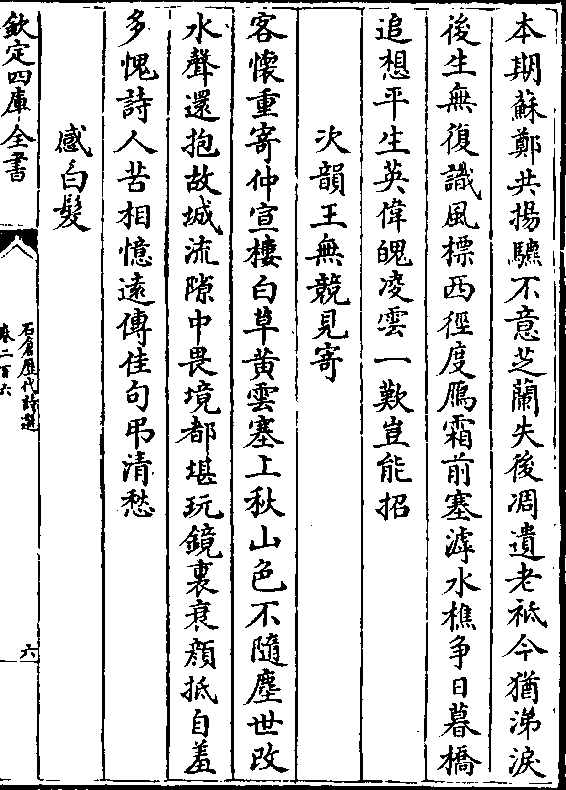 本期蘇鄭共揚鑣不意芝蘭失後凋遺老祗今猶涕淚
後生無復識風標西徑度鴈霜前塞滹水樵爭日暮橋
追想平生英偉魄凌雲一歎豈能招
次韻王無競見寄
客懷重寄仲宣樓白草黄雲塞上秋山色不隨塵世改
水聲還抱故城流隙中畏境都堪玩鏡裏衰顔抵自羞
多愧詩人苦相憶遠傳佳句弔清愁
感白髮
欽定四庫全書
石倉歷代詩選
卷二百六
六